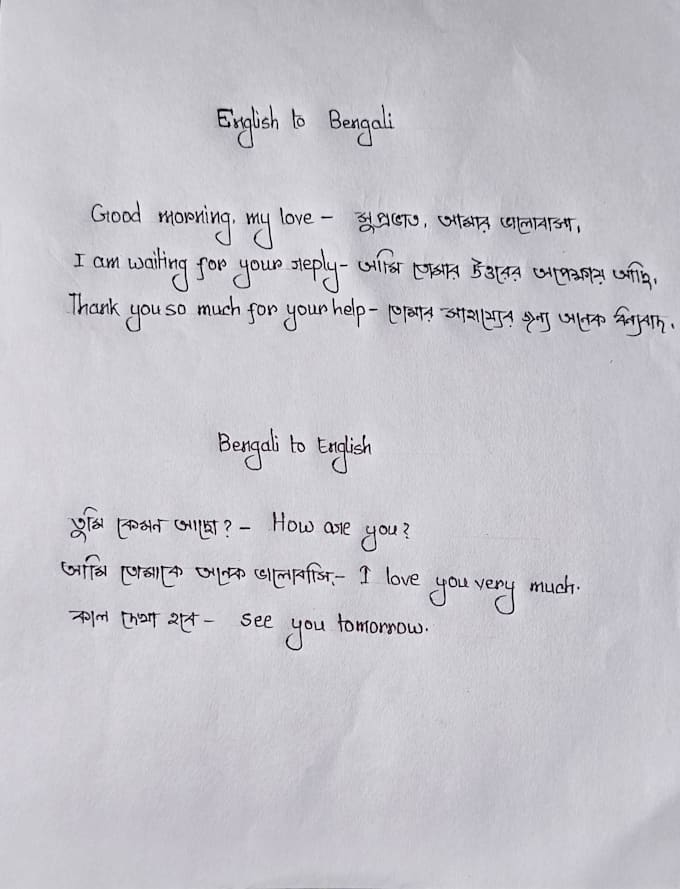 English to Bengali
Good morning, my love - সুপ্রভাত, আমার ভালোবাসা,
I am waiting for your reply - আমি তোমার উত্তরের অপেক্ষায় আছি,
Thank you so much for your help - তোমার সাহায্যের জন্য অনেক ধন্যবাদ.
Bengali to English
তুমি কেমন আছো? - How are you?
আমি তোমাকে অনেক ভালোবাসি. - I love you very much.
কাল দেখা হবে - see you tomorrow.